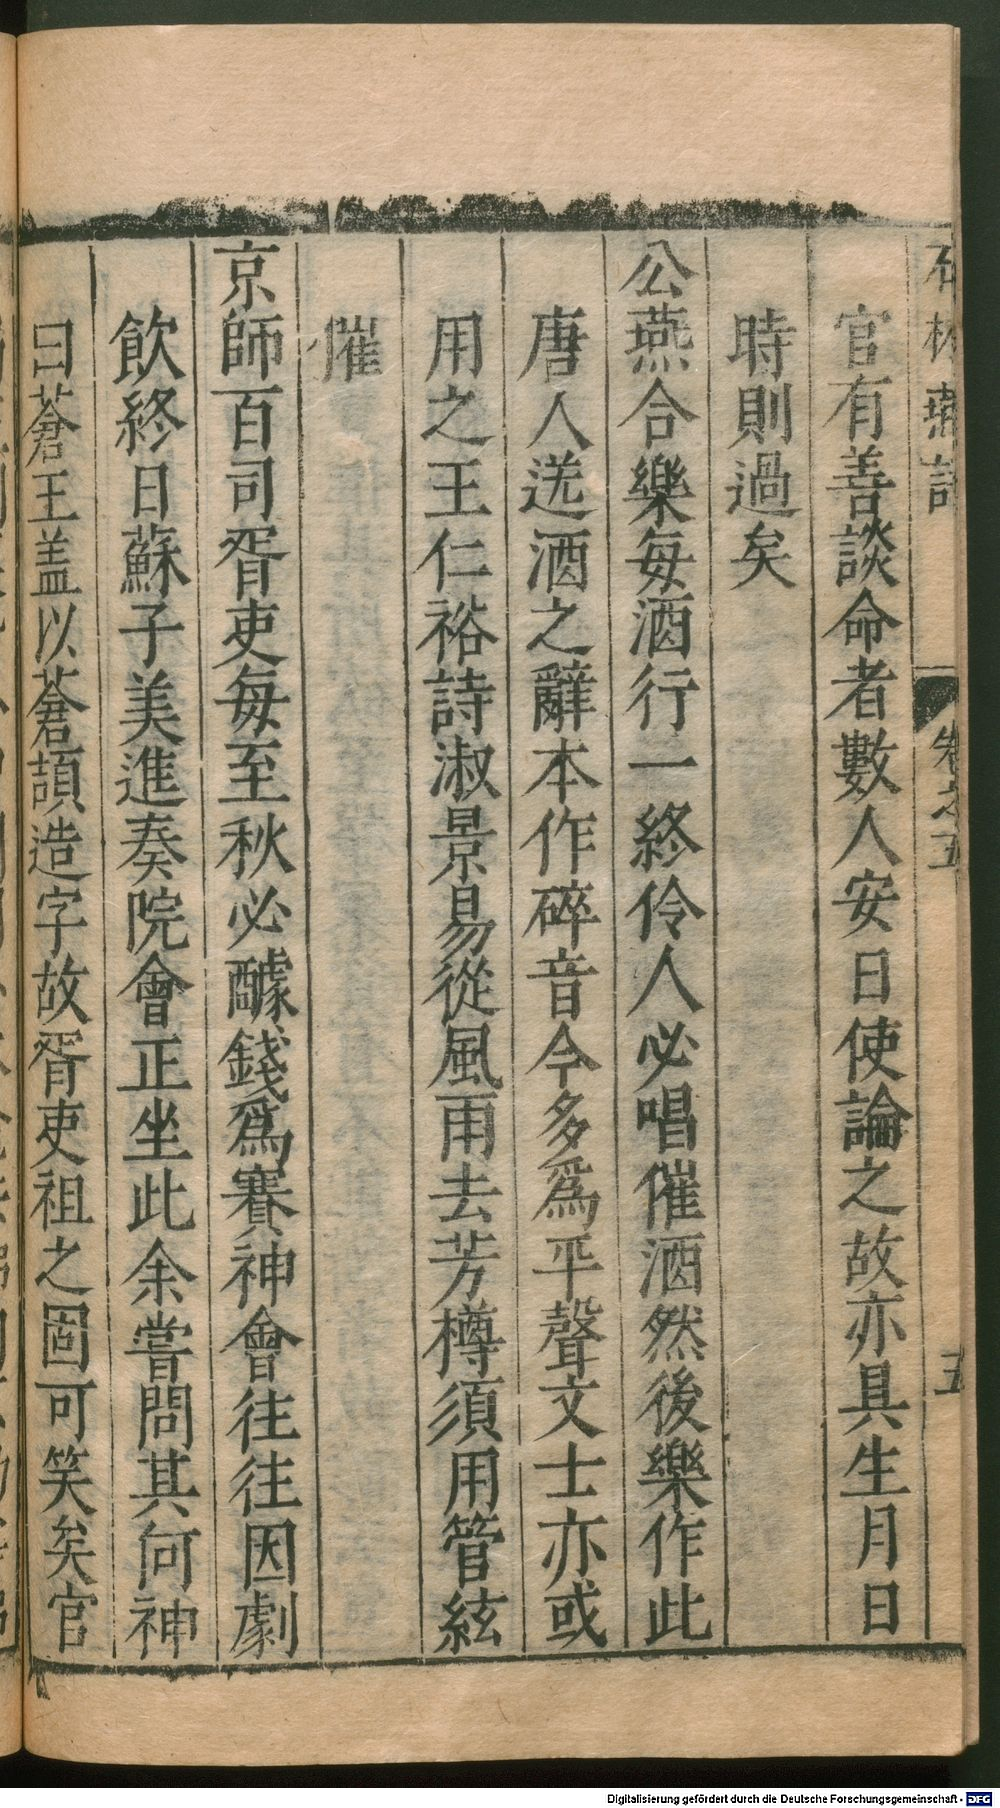 石林燕語 卷之五 五
官有善談命者數人安日使論之故亦具生月日
時則過矣
公燕合樂每酒行一終伶人必唱催酒然後樂作此
唐人送酒之辭本作碎音今多爲平聲文士亦或
用之王仁裕詩淑景易從風雨去芳樽須用管絃
催
京師百司胥吏每至秋必醵錢爲賽神會往往因劇
飲終日蘇子美進奏院會正坐此余嘗問其何神
曰蒼王盖以蒼頡造字故胥吏祖之固可笑矣官
Digitalisierung gefördert durch die Deutsche Forschungsgemeinschaft - DFG